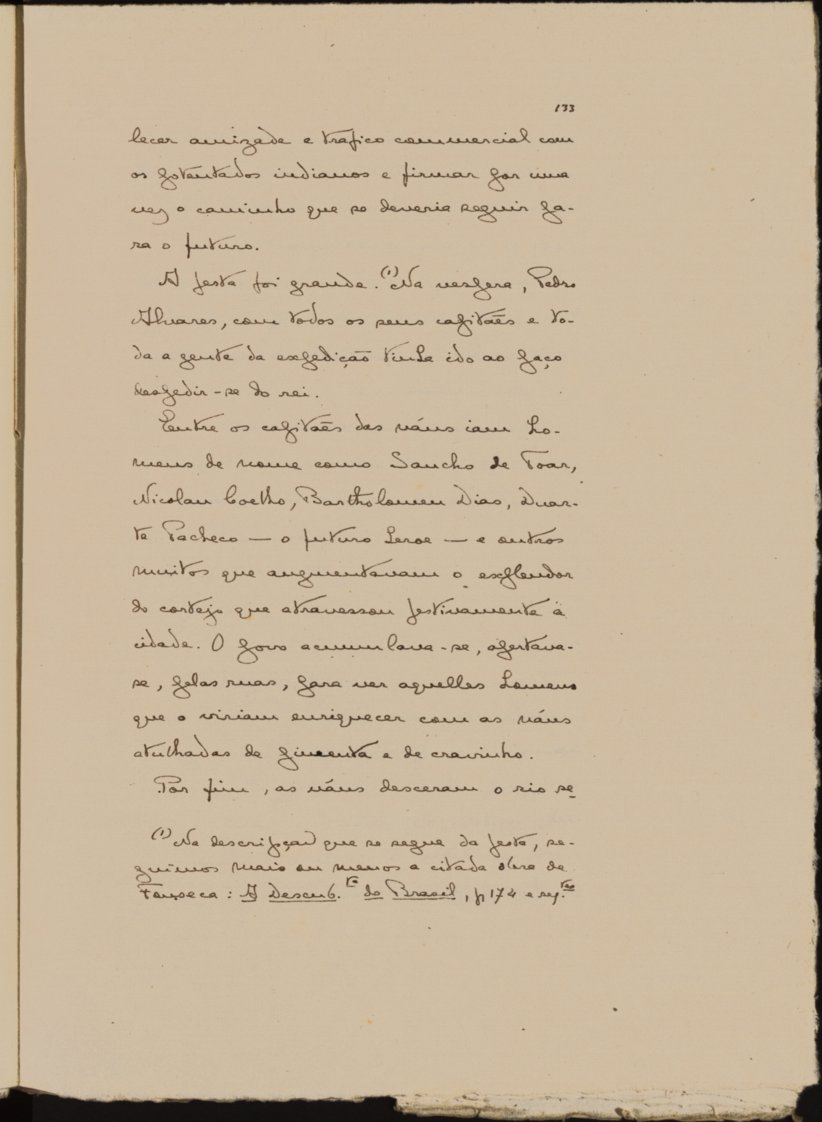 133
lecer amizade e trafico commercial com
os potentados indianos e firmar por uma
vez o caminho que se deveria seguir pa-
ra o futuro.
A festa foi grande. (1) Na vespera, Pedro
Alvares, com todos os seus capitães e to-
da a gente da expedição tinha ido ao paço
despedir-se do rei.
Entre os capitães das náus iam ho-
mens de nome como Sancho de Toar,
Nicolau Coelho, Bartholomeu Dias, Duar-
te Pacheco — o futuro heroe — e outros
muitos que augmentavam o explendor
do cortejo que atravessou festivamente a
cidade. O povo acumulava-se, apertava-
se, pelas ruas, para ver aquelles homens
que o viriam enriquecer com as náus
atulhadas de pimenta e de cravinho.
Por fim, as náus desceram o rio se
(1) Na descripção que se segue da festa, se-
guimos mais ou menos a citada obra de
Fonseca: A Descub.ta do Brasil, p 174 e seg.tes